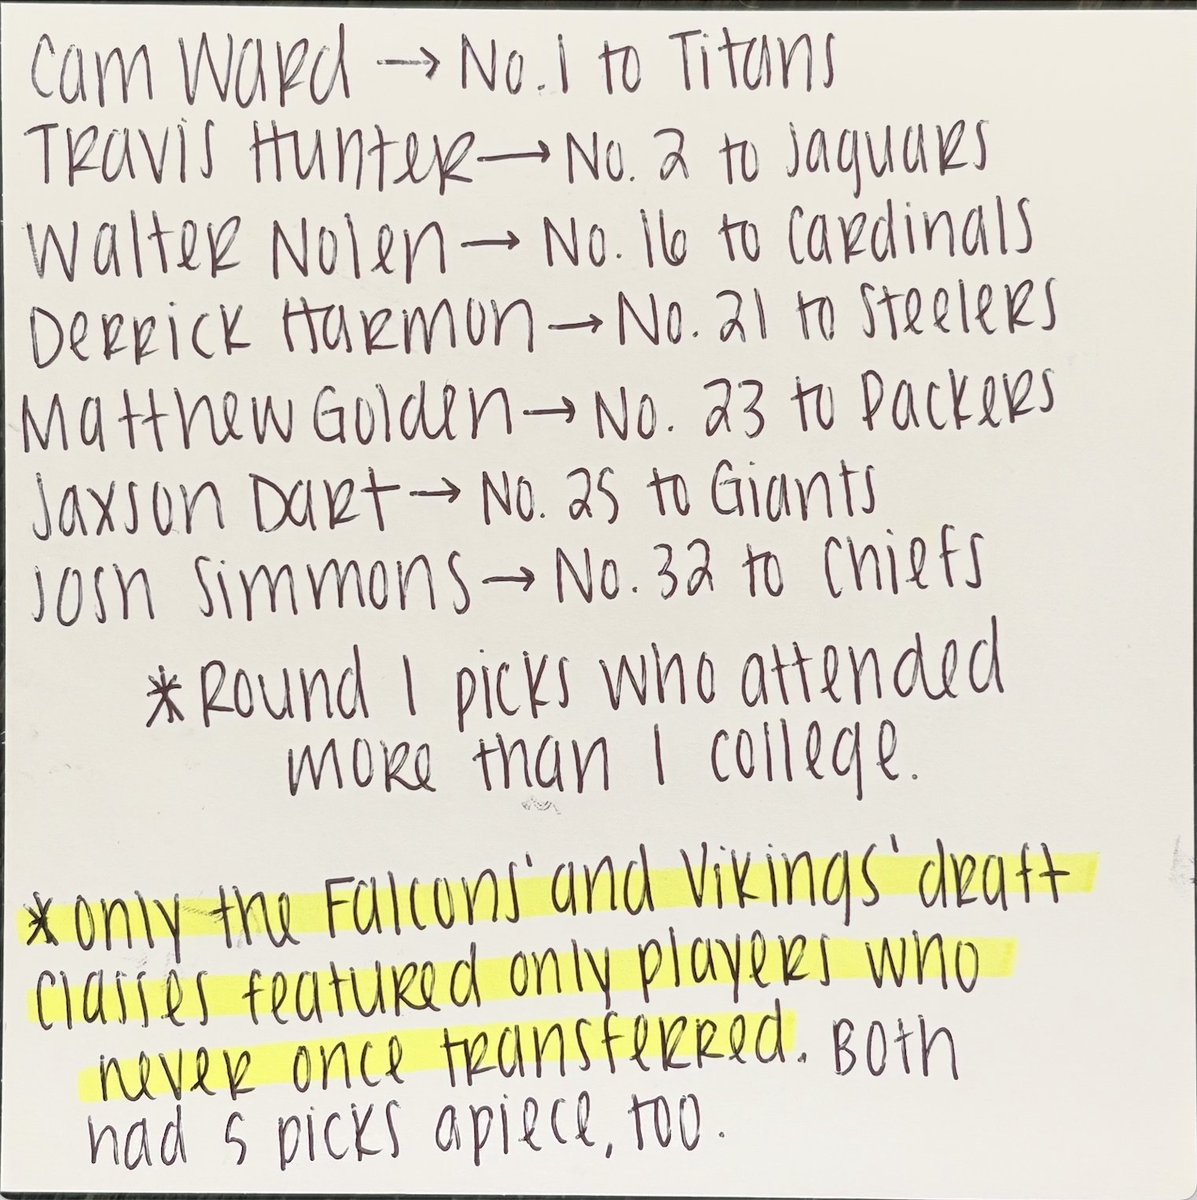 Cam Ward → No. 1 to Titans
Travis Hunter → No. 2 to Jaguars
Walter Nolen → No. 16 to Cardinals
Derrick Harmon → No. 21 to Steelers
Matthew Golden → No. 23 to Packers
Jaxson Dart → No. 25 to Giants
Josh Simmons → No. 32 to Chiefs
*Round 1 picks who attended
more than 1 college.
*only the Falcons' and Vikings' draft
classes featured only players who
never once transferred. Both
had 5 picks apiece, too.